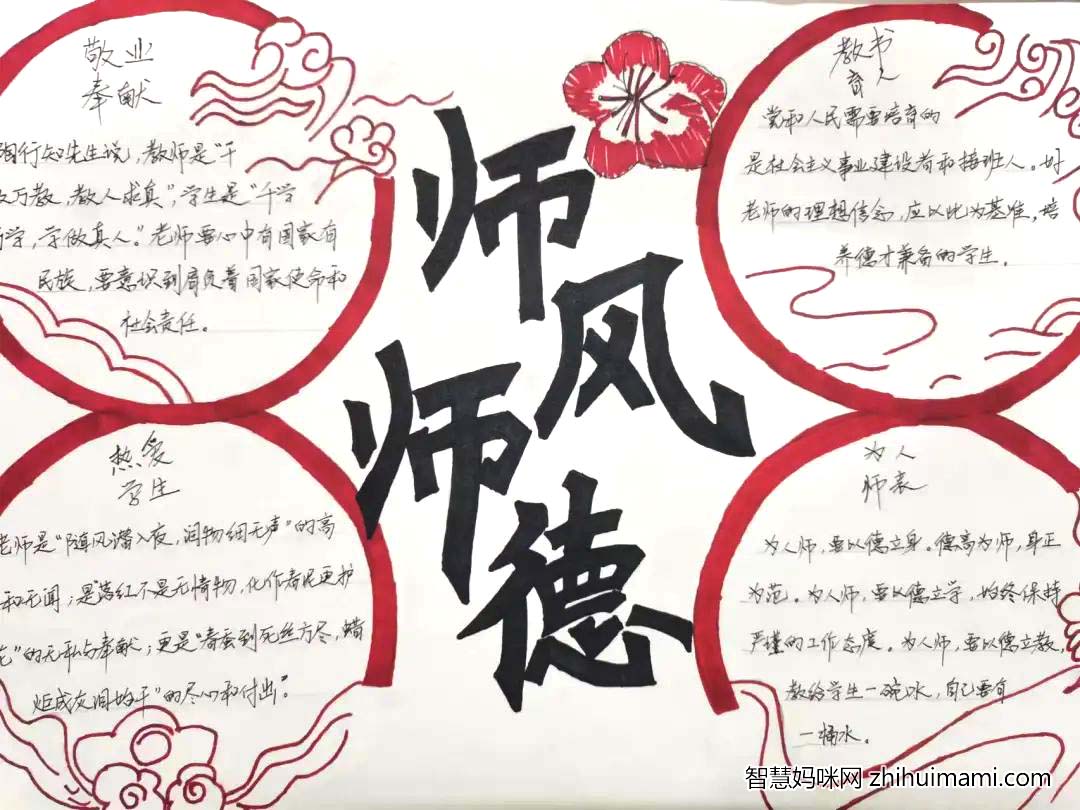 敬业
奉献
陶行知先生说，教师是“千
教万教，教人求真”，学生是“千学
学，学做真人。”老师要心中有国家有
民族，要意识到肩负着国家使命和
社会责任。
师风
师德
教书
育人
党和人民需要培育的
是社会主义事业建设者和接班人。好
老师的理想信念，应以此为基准，培
养德才兼备的学生。
热爱
学生
老师是“随风潜入夜，润物细无声”的高
和无闻；是落红不是无情物，化作春泥更护
花”的无私与奉献；更是“春蚕到死丝方尽，蜡
炬成灰泪始干”的尽心和付出。”
为人
师表
为人师，要以德立身。德高为师，身正
为范。为人师，要以德立学，始终保持
严谨的工作态度。为人师，要以德立教，
教给学生一碗水，自己要有
一桶水。
智慧妈咪网 zhihuimami.com